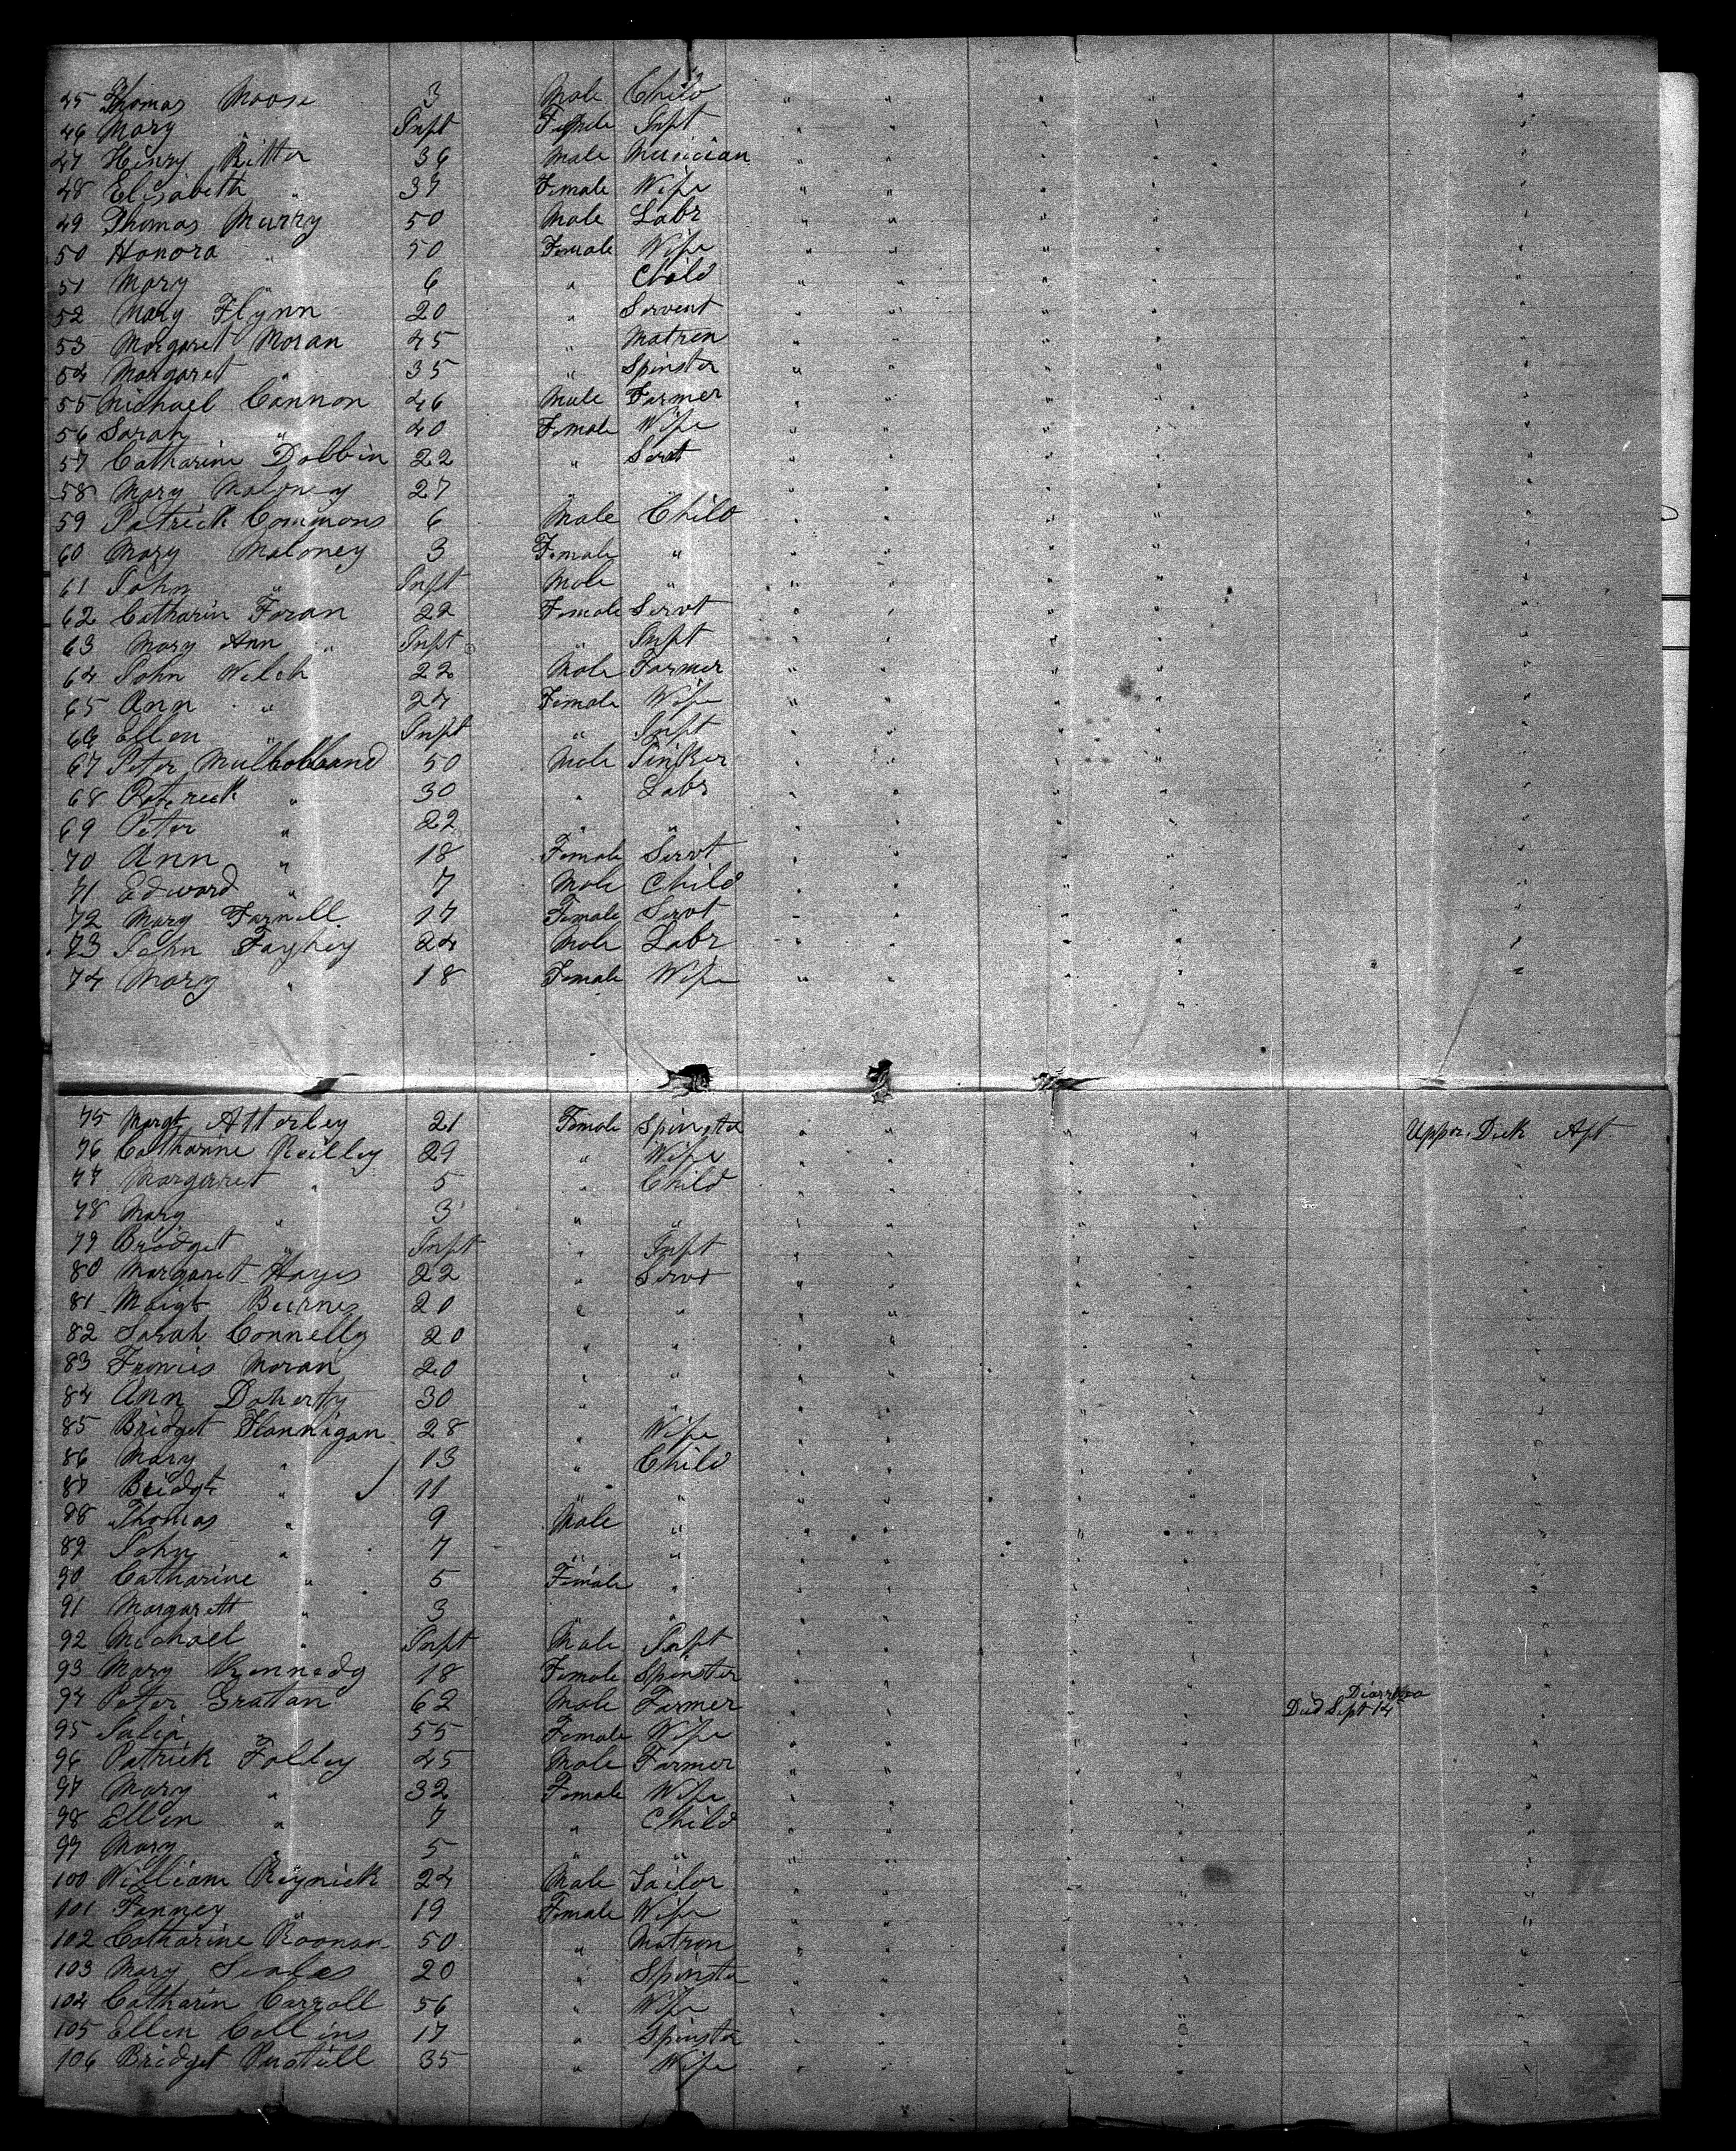 45 Thomas Moose 3 Male Child " " " " "
46 Mary " Inft Female Inft " " " " "
47 Henry Ritter 36 Male Musician " " " " "
48 Elisabeth " 37 Female Wife " " " " "
49 Thomas Murry 50 Male Labr " " " " "
50 Honora " 50 Female Wife " " " " "
51 Mary " 6 " Child " " " " "
52 Mary Flynn 20 " Servent " " " " "
53 Margaret Moran 45 " Matren " " " " "
54 Margaret " 35 " Spinster " " " " "
55 Michael Cannon 46 Male Farmer " " " " "
56 Sarah " 40 Female Wife " " " " "
57 Catharine Dobbin 22 " Servt " " " " "
58 Mary Maloney 27 " " " " " " "
59 Patrick Commons 6 Male Child " " " " "
60 Mary Maloney 3 Female " " " " " "
61 John " Inft Male " " " " " "
62 Catharin Foran 22 Female Servt " " " " "
63 Mary Ann " Inft " Inft " " " " "
64 John Welch 22 Male Farmer " " " " "
65 Ann " 24 Female Wife " " " " "
66 Ellen " Inft " Inft " " " " "
67 Peter Mulholland 50 Male Tinker " " " " "
68 Patrick " 30 " Labr " " " " "
69 Peter " 22 " " " " " " "
70 Ann " 18 Female Servt " " " " "
71 Edward " 7 Male Child " " " " "
72 Mary Farnell 17 Female Servt " " " " "
73 John Fayhey 24 Male Labr " " " " "
74 Mary " 18 Female Wife " " " " "
75 Margt Atterley 21 Female Spinster " " " " Upper Deck Aft
76 Catharine Reilley 29 " Wife " " " " "
77 Margarret " 5 " Child " " " " "
78 Mary " 3 " " " " " " "
79 Bridget " Inft " Inft " " " " "
80 Margaret Hayes 22 " Servt " " " " "
81 Margt Burnes 20 " " " " " " "
82 Sarah Connelly 20 " " " " " " "
83 Francis Moran 20 " " " " " " "
84 Ann Doherty 30 " " " " " " "
85 Bridget Flannigan 28 " Wife " " " " "
86 Mary " 13 " Child " " " " "
87 Bridgt " 11 " " " " " " "
88 Thomas " 9 Male " " " " " "
89 John " 7 " " " " " " "
90 Catharine " 5 Female " " " " " "
91 Margarett " 3 " " " " " " "
92 Michael " Inft Male Inft " " " " "
93 Mary Kennedy 18 Female Spinster " " " " "
94 Peter Gratan 62 Male Farmer " " " " Diarrhea Died Sept 14 "
95 Julia " 55 Female Wife " " " " "
96 Patrick Folley 45 Male Farmer " " " " "
97 Mary " 32 Female Wife " " " " "
98 Ellen " 7 " Child " " " " "
99 Mary " 5 " " " " " " "
100 William Reynick 24 Male Tailor " " " " "
101 Fanney " 19 Female Wife " " " " "
102 Catharine Roonan 50 " Matron " " " " "
103 Mary Scales 20 " Spinster " " " " "
104 Catharin Carroll 56 " Wife " " " " "
105 Ellen Collins 17 " Spinster " " " " "
106 Bridget 35 " Wife " " " " "